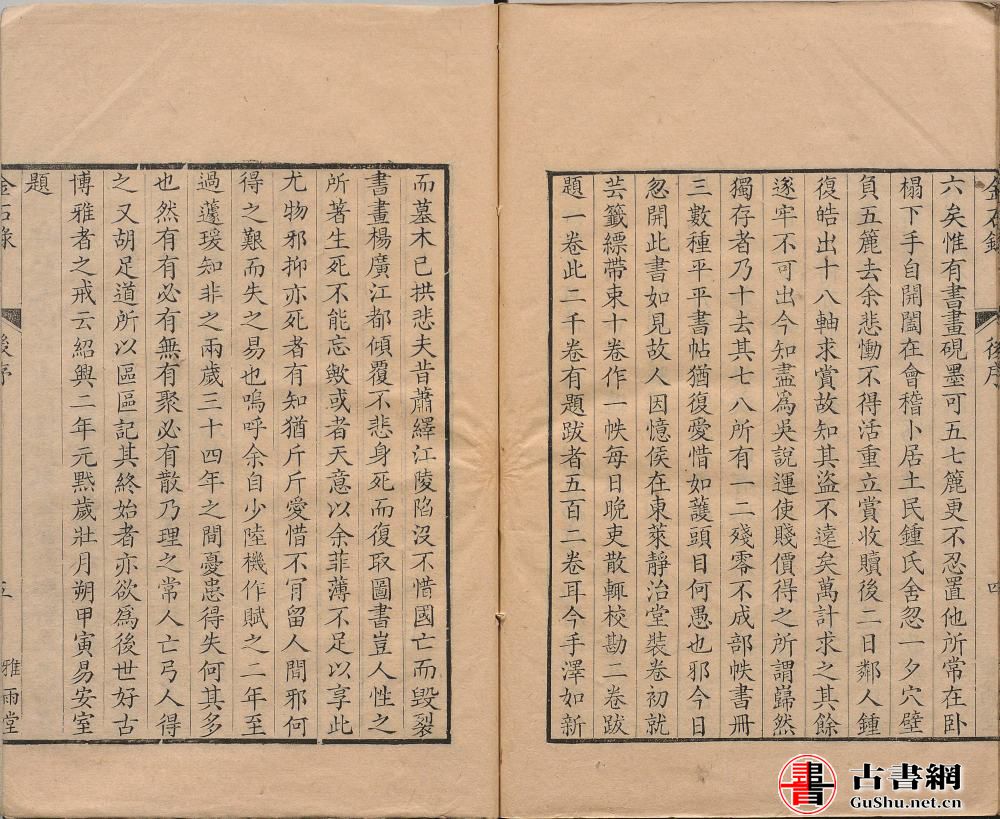 金石錄
後序
六矣惟有書畫硯墨可五七簏更不忍置他所常在卧
榻下手自開闔在會稽卜居土民鍾氏舍忽一夕穴壁
負五簏去余悲慟不得活重立賞收贖後二日鄰人鍾
復皓出十八軸求賞故知其盜不遠矣萬計求之其餘
遂牢不可出今知盡為吳說運使賤價得之所謂巋然
獨存者乃十去其七八所有一二殘零不成部帙書冊
三數種平平書帖猶復愛惜如護頭目何愚也邪今日
忽開此書如見故人因憶侯在東萊靜治堂裝卷初就
芸籤縹帶束十卷作一帙每日晚吏散輒校勘二卷跋
題一卷此二千卷有題跋者五百二卷耳今手澤如新
而墓木已拱悲夫昔蕭繹江陵陷沒不惜國亡而毀裂
書畫楊廣江都傾覆不悲身死而復取圖書豈人性之
所著生死不能忘歟或者天意以余菲薄不足以享此
尤物邪抑亦死者有知猶斤斤愛惜不肎留人間邪何
得之艱而失之易也嗚呼余自少陸機作賦之二年至
過蘧瑗知非之兩歲三十四年之間憂患得失何其多
也然有有必有無有聚必有散乃理之常人亡弓人得
之又胡足道所以區區記其終始者亦欲為後世好古
博雅者之戒云紹興二年元黓歲壯月朔甲寅易安室
題
金石錄
後序
五
雅雨堂
古書網
GuShu.net.cn